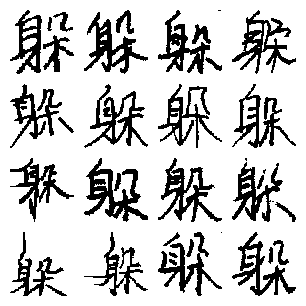 躲躲躲躲
躲躲躲躲
躲躲躲躲
躲躲躲躲